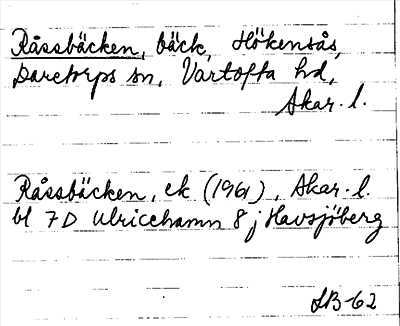 Råssbäcken, bäck, Hökensås,
Daretorps sn, Vartofta hd,
Skar. l.
Råssbäcken, ek (1961), Skar. l.
bl 7D Ulricehamn 8 j Havsjöberg
SB-62